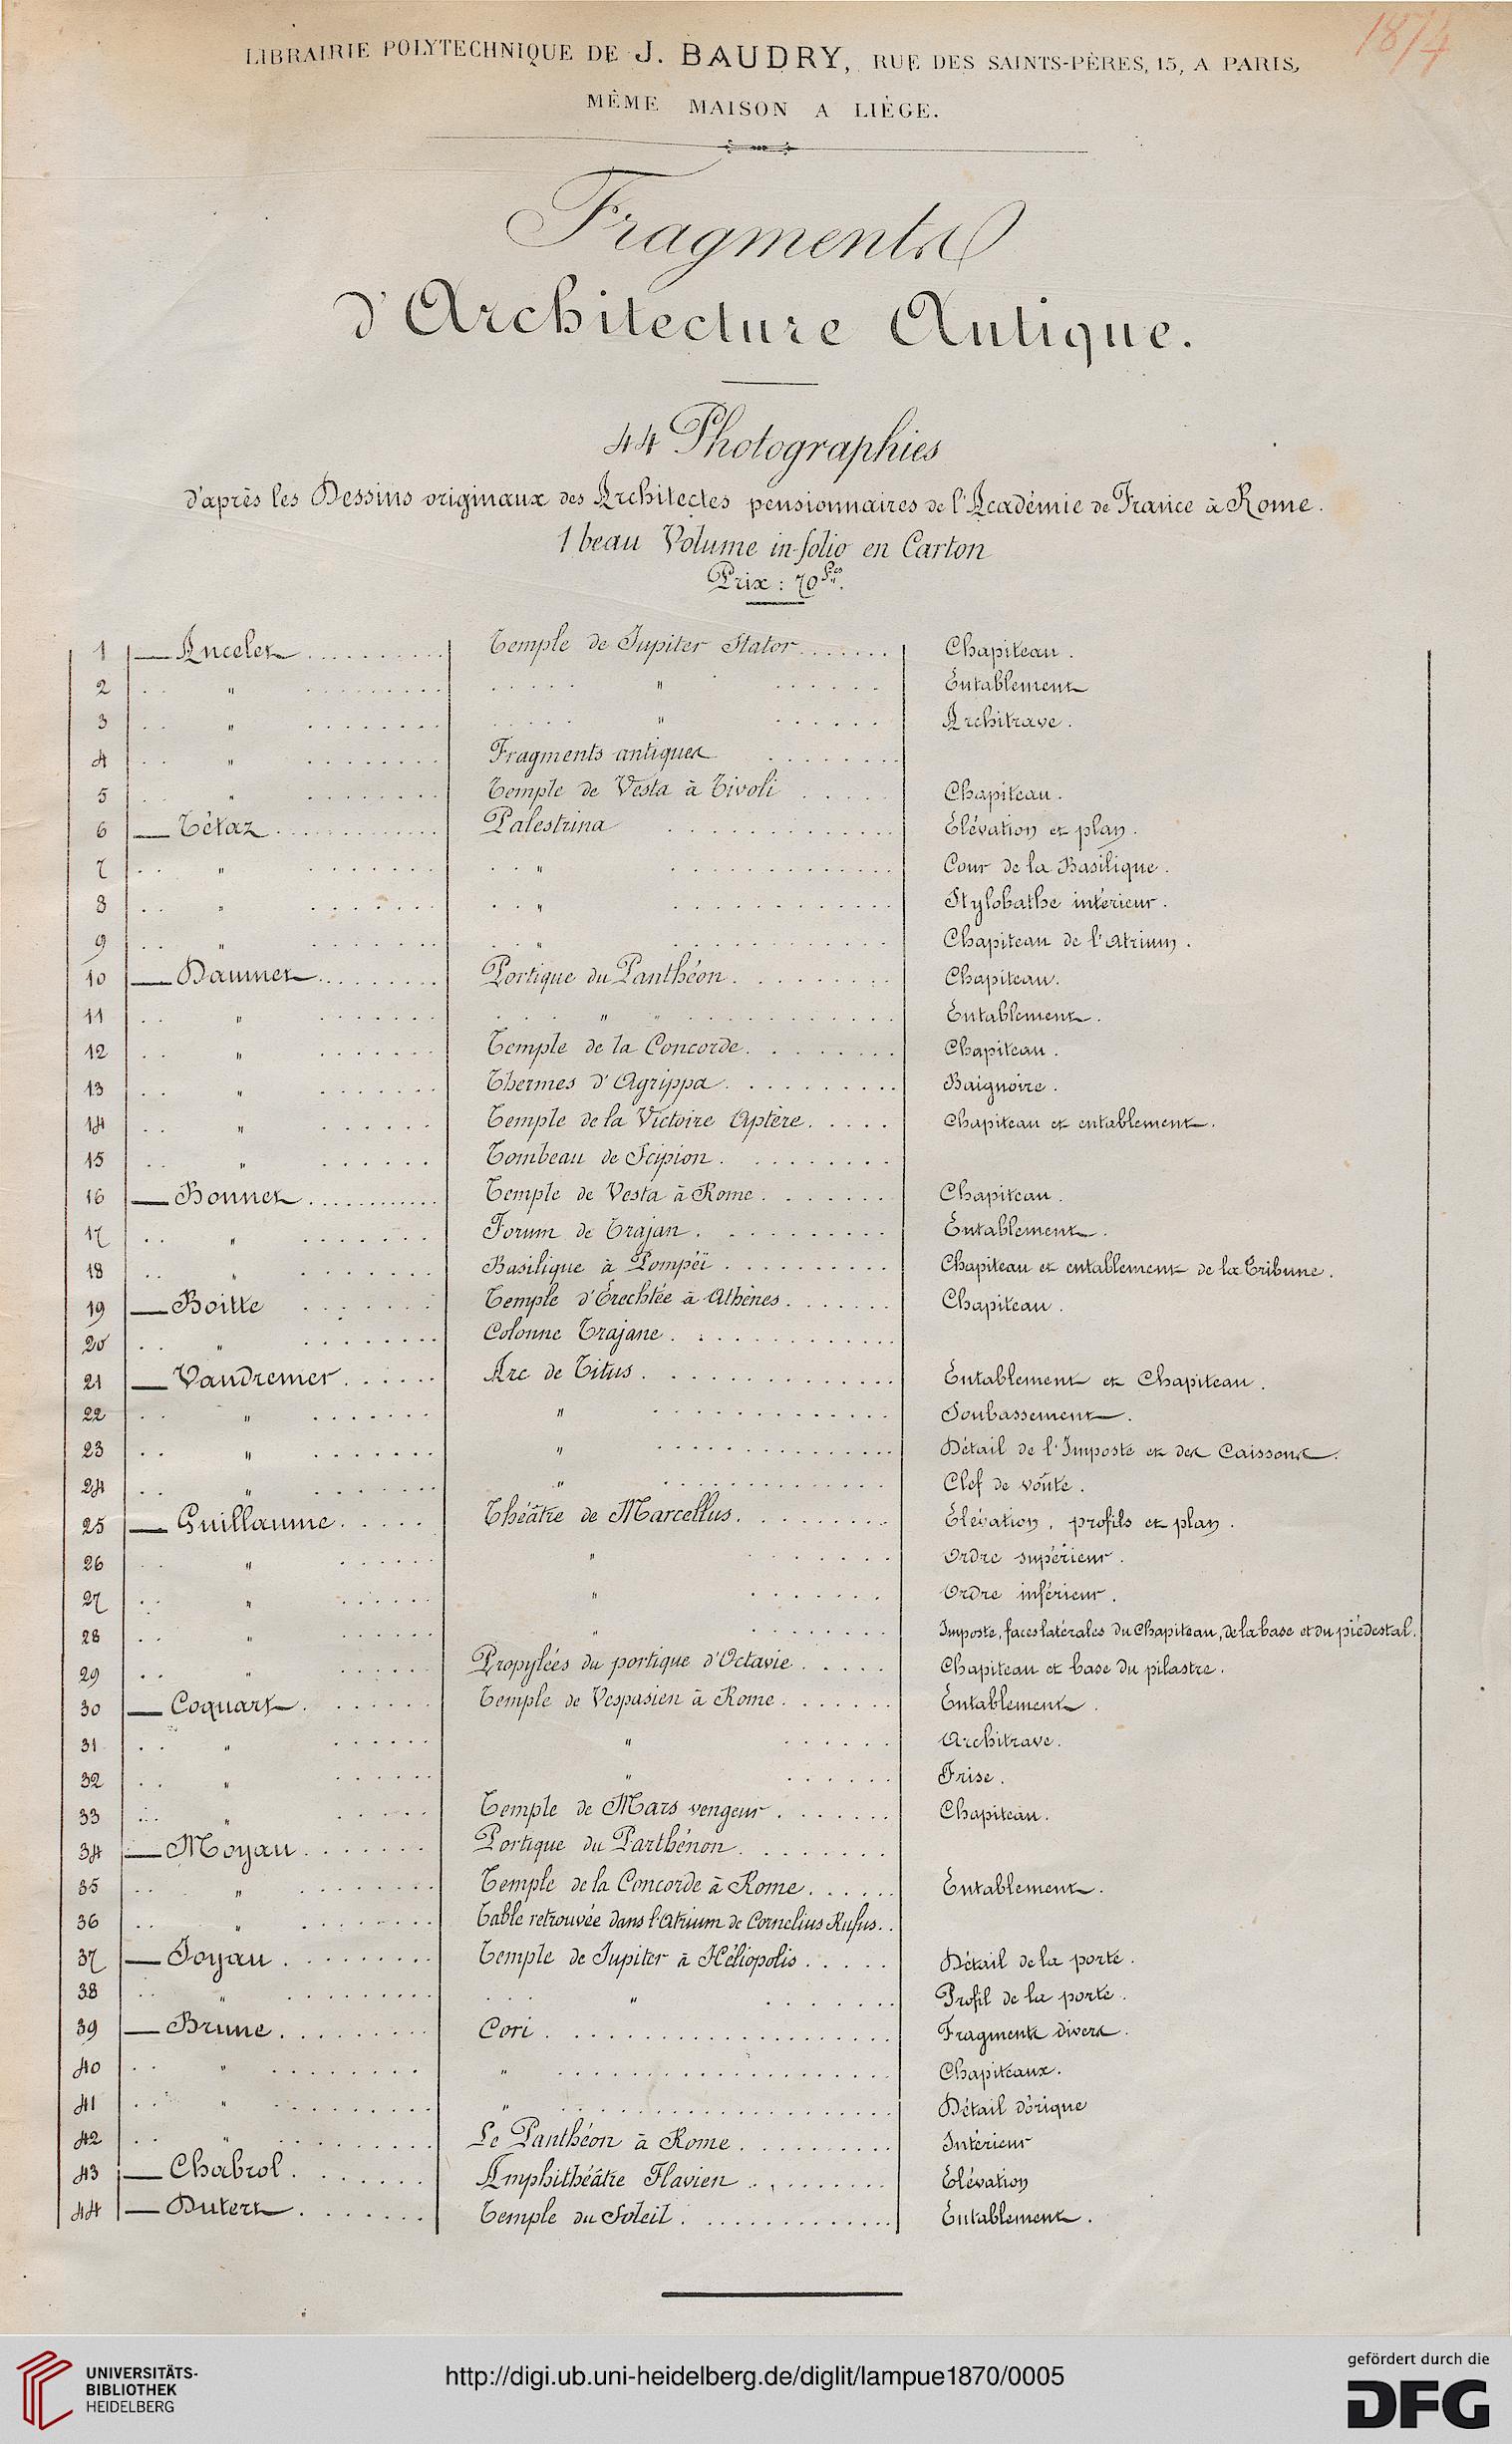 1874
LIBRAIRIE POLYTECHNIQUE DE J. BAUDRY, RUE DES SAINTS-PÈRES, 15, A PARIS,
MÊME MAISON A LIÈGE.
Fragments
d'Architecture Antique.
44 Photographies
d'après les Dessins originaux des Architectes pensionnaires de l'Académie de France à Rome.
1 beau Volume in-folio en Carton
Prix : 70 fcs.
1 — Ancelet .......... Temple de Jupiter Stator ....... Chapiteau.
2 .. " ......... ..... " ...... Entablement
3 .. " ........ ..... " ...... Architrave.
4 .. " ........ Fragments antiques ........
5 .. " ........ Temple de Vesta à Tivoli ..... Chapiteau.
6 — Tétaz ............ Palestrina ............. Elévation et plan.
7 .. " ....... .. " ............. Cour de la Basilique.
8 .. " ....... .. " ............ Stylobathe intérieur.
9 .. " ....... .. " ............ Chapiteau de l'Atrium.
10 — Daumet ......... Portique du Panthéon ......... Chapiteau.
11 .. " ....... ... " " ............ Entablement.
12 .. " ....... Temple de la Concorde ........ Chapiteau.
13 .. " ....... Thermes d'Agrippa .......... Baignoire.
14 .. " ...... Temple de la Victoire Aptère ..... Chapiteau et entablement.
15 .. " ...... Tombeau de Scipion .........
16 — Bonnet ............ Temple de Vesta à Rome ....... Chapiteau.
17 .. " ....... Forum de Trajan .......... Entablement.
18 .. " ....... Basilique à Pompéï .......... Chapiteau et entablement de la Tribune.
19 — Boitte ....... Temple d'Érechtée à Athènes ....... Chapiteau.
20 .. " ........ Colonne Trajane ............
21 — Vaudremer ...... Arc de Titus ............. Entablement et Chapiteau.
22 .. " ....... " ............. Soubassement.
23 .. " ....... " ............. Détail de l'Imposte et des Caissons.
24 .. " ....... " ............ Clef de voûte.
25 — Guillaume ..... Théâtre de Marcellus ......... Elévation, profils et plan.
26 .. " ...... " ....... Ordre supérieur.
27 .. " ...... " ....... Ordre inférieur.
28 .. " ...... " ........ Imposte, faces latérales du Chapiteau, de la base et du piédestal.
29 .. " ...... Propylées du portique d'Octavie ..... Chapiteau et base du pilastre.
30 — Coquart ....... Temple de Vespasien à Rome ....... Entablement.
31 .. " ...... " ...... Architrave.
32 .. " ...... " ...... Frise.
33 .. " ..... Temple de Mars vengeur ....... Chapiteau.
34 — Moyau ....... Portique du Parthénon ........
35 .. " ........ Temple de la Concorde à Rome ...... Entablement.
36 .. " ........ Table retrouvée dans l'Atrium de Cornelius Rufus..
37 — Joyau ......... Temple de Jupiter à Héliopolis ..... Détail de la porte.
38 .. " ......... ... " ....... Profil de la porte.
39 — Brune ......... Cori ................... Fragments divers.
40 .. " ........ " .................. Chapiteaux.
41 .. " .......... " .................. Détail dorique
42 .. " ......... Le Panthéon à Rome .......... Intérieur
43 — Chabrol ....... Amphithéâtre Flavien ........ Elévation
44 — Dutert ....... Temple du Soleil ............ Entablement.
UNIVERSITÄTS-
BIBLIOTHEK
HEIDELBERG
http://digi.ub.uni-heidelberg.de/diglit/lampue1870/0005
gefördert durch die
DFG